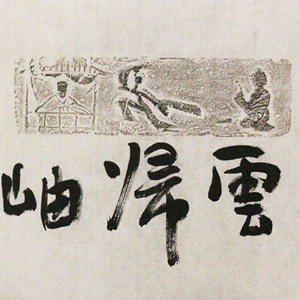 雲歸岫